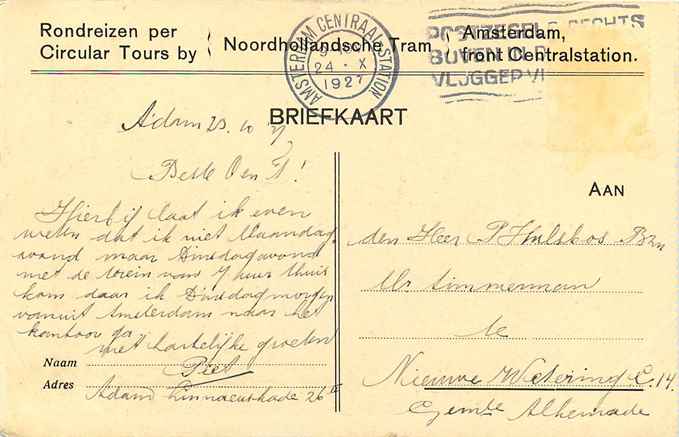 Rondreizen per
Circular Tours by
Noordhollandsche Tram
Amsterdam,
front Centralstation.
AMSTERDAM CENTRAAL-STATION
24 - X
1927
POSTZEGELS RECHTS
BOVEN
BRIEFKAART
A'dam 23.10 27
Beste O en T!
Hierbij laat ik even
weten dat ik niet Maandag
avond maar Dinsdagavond
met de trein van 7 uur thuis
kom daar ik Dinsdag morgen
vanuit Amsterdam naar het
kantoor ga,
met hartelijke groeten
Naam Piet
Adres Adam Linnaeuskade 26 II
AAN
den Heer P Hulsbos Bzn
Mr timmerman
te
Nieuwe Wetering C.14.
Gemte Alkemade